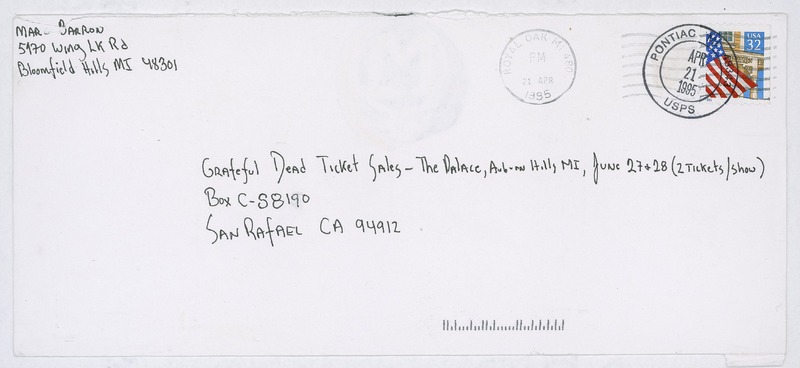 Mar- Barron
5170 Wing Lk Rd
Bloomfield Hills MI 48301
ROYAL OAK MI 480
PM
21 APR
1995
PONTIAC
APR
21
1995
USPS
USA
32
Grateful Dead Ticket Sales - The Palace, Auburn Hills MI, June 27+28 (2 Tickets/show)
Box C-S8190
San Rafael CA 94912